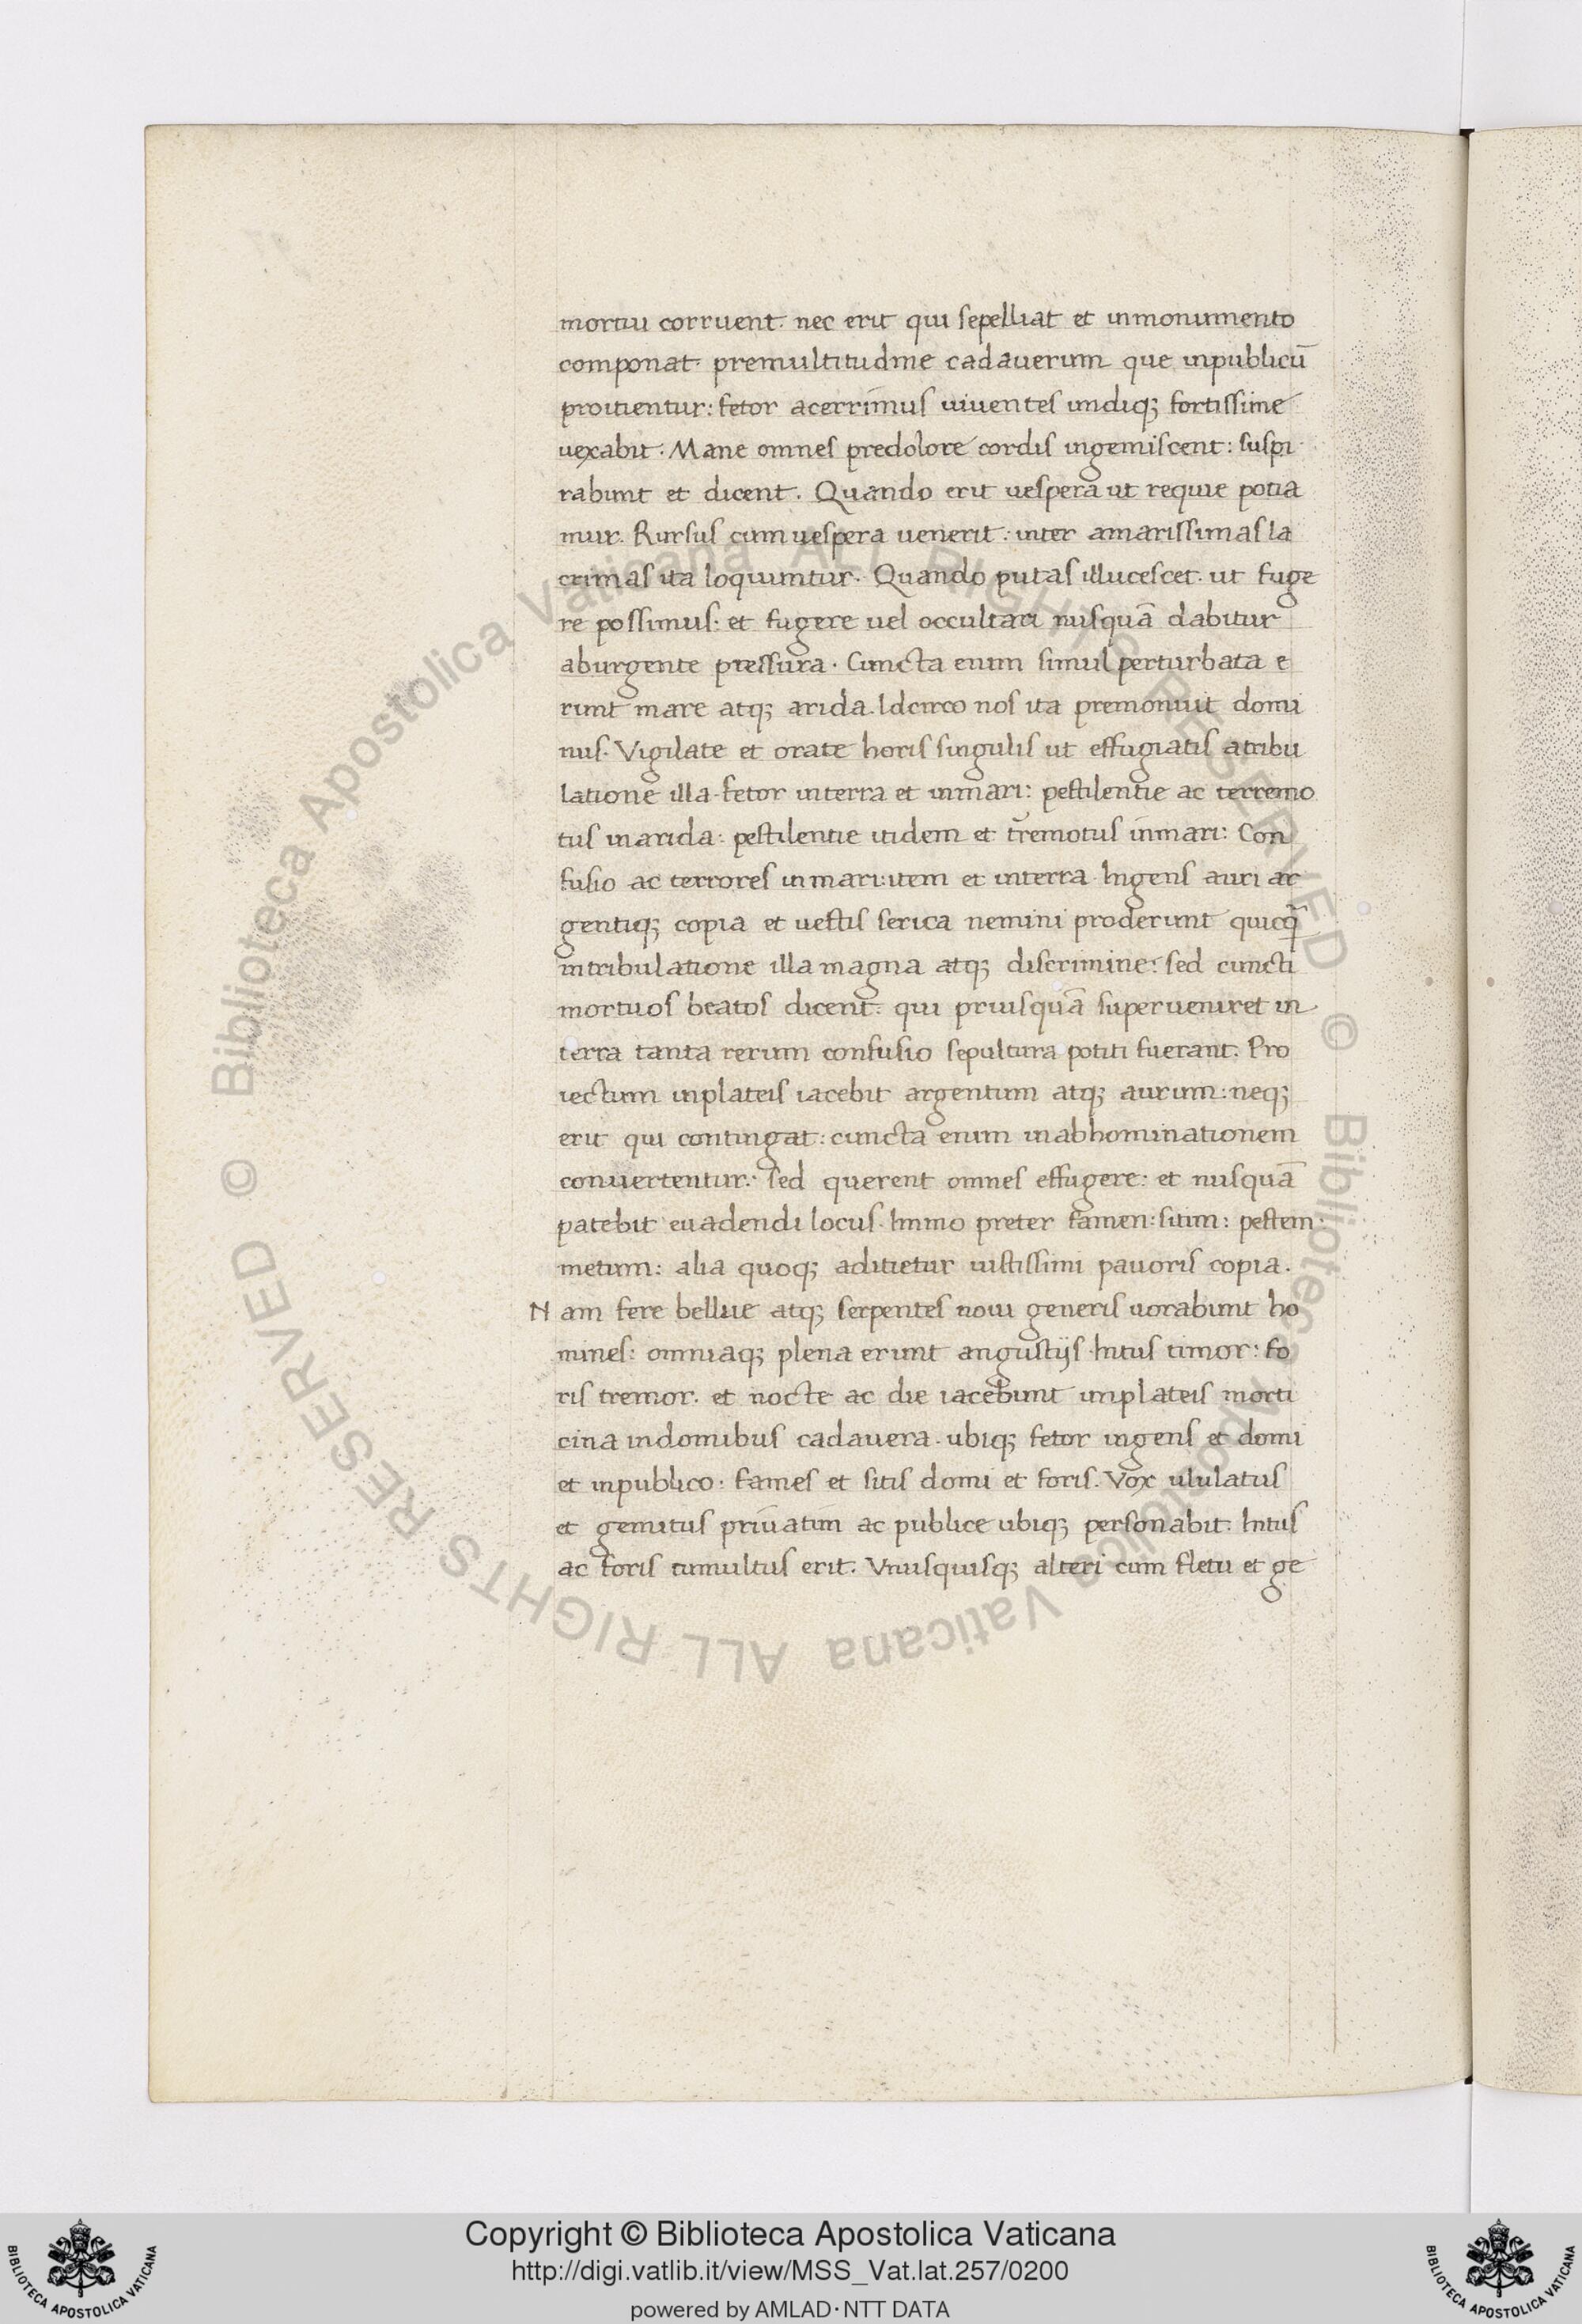 mortui corruent. nec erit qui sepelliat et inmonumento
componat. premultitudine cadauerum que inpublicū
proitientur: fetor acerrimus uiuentes undiq; fortissime
uexabit. Mane omnes predolore cordis ingemiscent: suspi
rabunt et dicent. Quando erit uespera ut requie potia
mur. Rursus cum uespera uenerit: inter amarissimas la
crimas ita loquuntur. Quando putas illucescet. ut fuge
re possimus: et fugere uel occultari nusquā dabitur
aburgente pressura. Cuncta enim simul perturbata e
runt mare atq; arida. Idcirco nos ita premonuit domi
nus. Vigilate et orate horis singulis ut effugiatis atribu
latione illa. fetor interra et inmari: pestilentie ac terremo
tus inarida: pestilentie itidem et tremotus inmari: Con
fusio ac terrores inmari: item et interra. Ingens auri ar
gentiq; copia et uestis serica nemini proderunt quicq̄
intribulatione illa magna atq; discrimine: sed cuncti
mortuos beatos dicent: qui priusquā superueniret in
terra tanta rerum confusio sepultura potiti fuerant. Pro
iectum inplateis iacebit argentum atq; aurum: neq;
erit qui contingat: cuncta enim inabhominationem
conuertentur: sed querent omnes effugere: et nusquā
patebit euadendi locus. Immo preter famen: sitim: pestem:
metum: alia quoq; aditietur iustissimi pauoris copia.
Nam fere bellue atq; serpentes noui generis uorabunt ho
mines: omniaq; plena erunt angustijs. Intus timor: fo
ris tremor. et nocte ac die iacebunt inplateis morti
cina indomibus cadauera. ubiq; fetor ingens et domi
et inpublico. fames et sitis domi et foris. Vox ululatus
et gemitus priuatim ac publice ubiq; personabit. Intus
ac foris tumultus erit. Vnusquisq; alteri cum fletu et ge
© Biblioteca Apostolica Vaticana ALL RIGHTS RESERVED
© Biblioteca Apostolica Vaticana ALL RIGHTS RESERVED
Copyright © Biblioteca Apostolica Vaticana
http://digi.vatlib.it/view/MSS_Vat.lat.257/0200
powered by AMLAD·NTT DATA
BIBLIOTECA APOSTOLICA VATICANA
BIBLIOTECA APOSTOLICA VATICANA